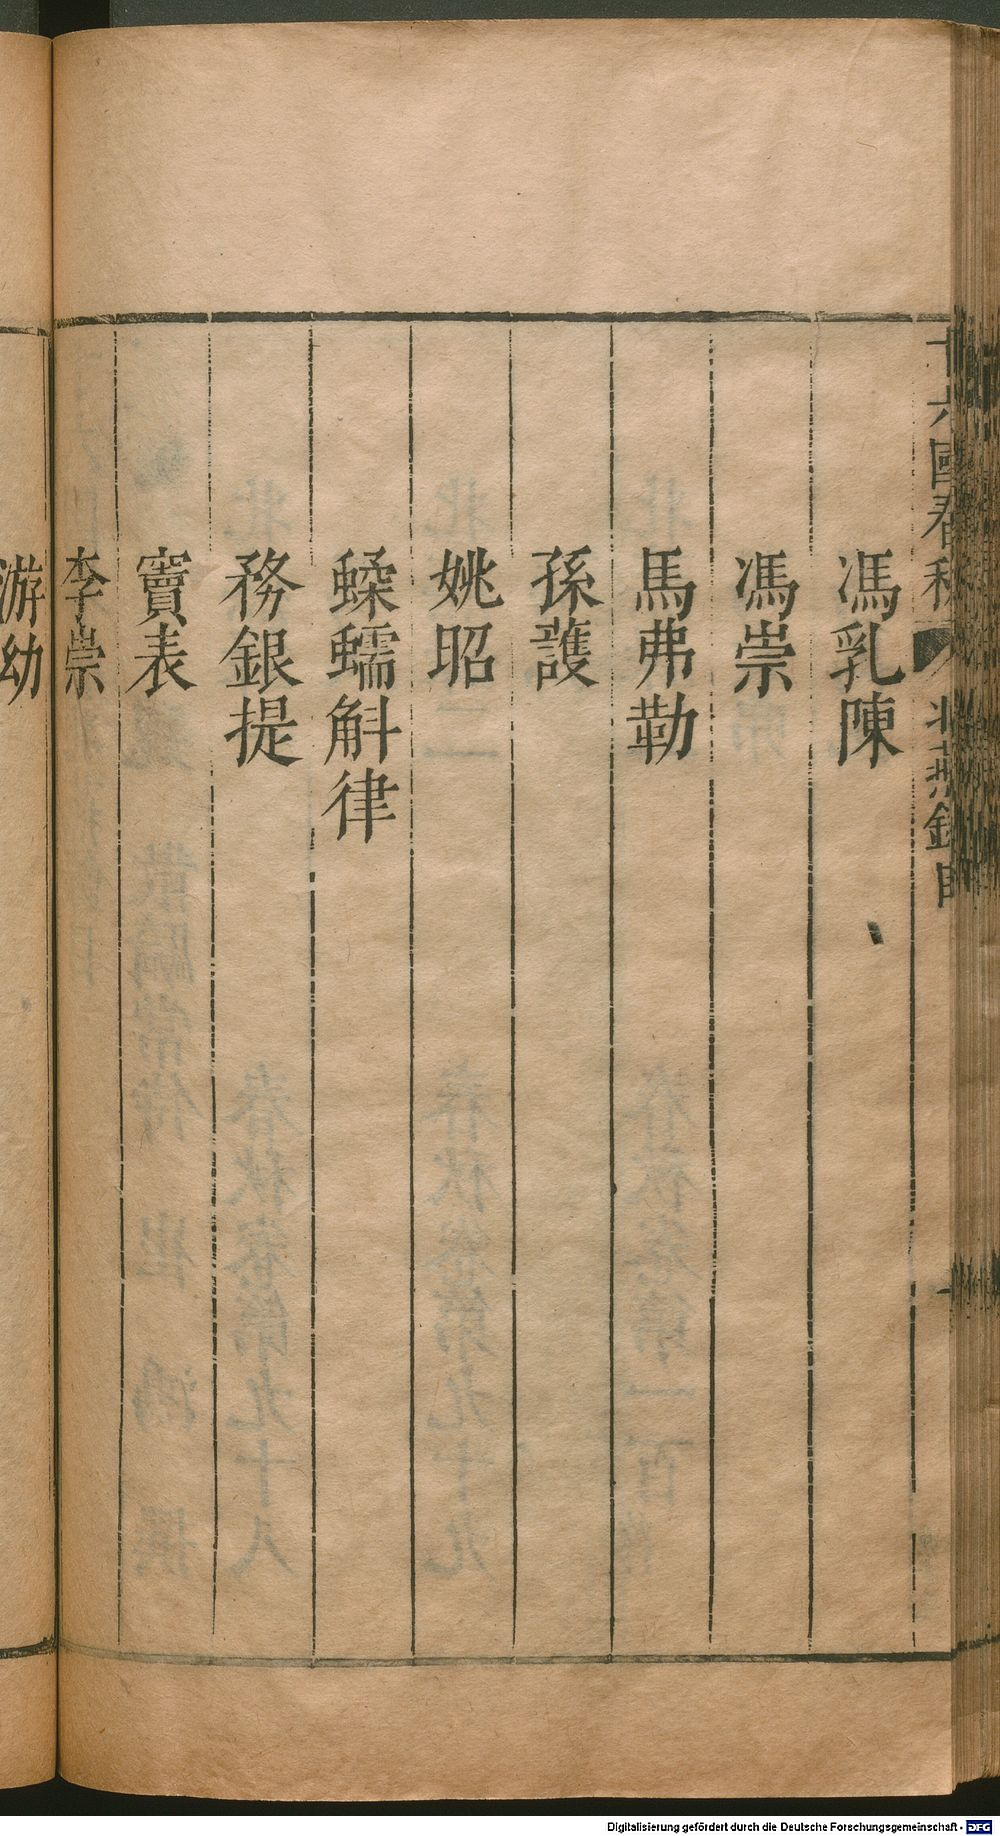 十六國春秋 北燕錄目
馮乳陳
馮崇
馬弗勒
孫護
姚昭
蝚蠕斛律
務銀提
竇表
李崇
游幼
Digitalisierung gefördert durch die Deutsche Forschungsgemeinschaft - DFG